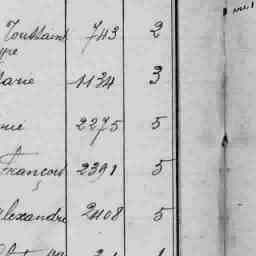 Toussaint 743 2
Marie 1134 3
2275 5
François 2391 5
Alexandre 2408 5